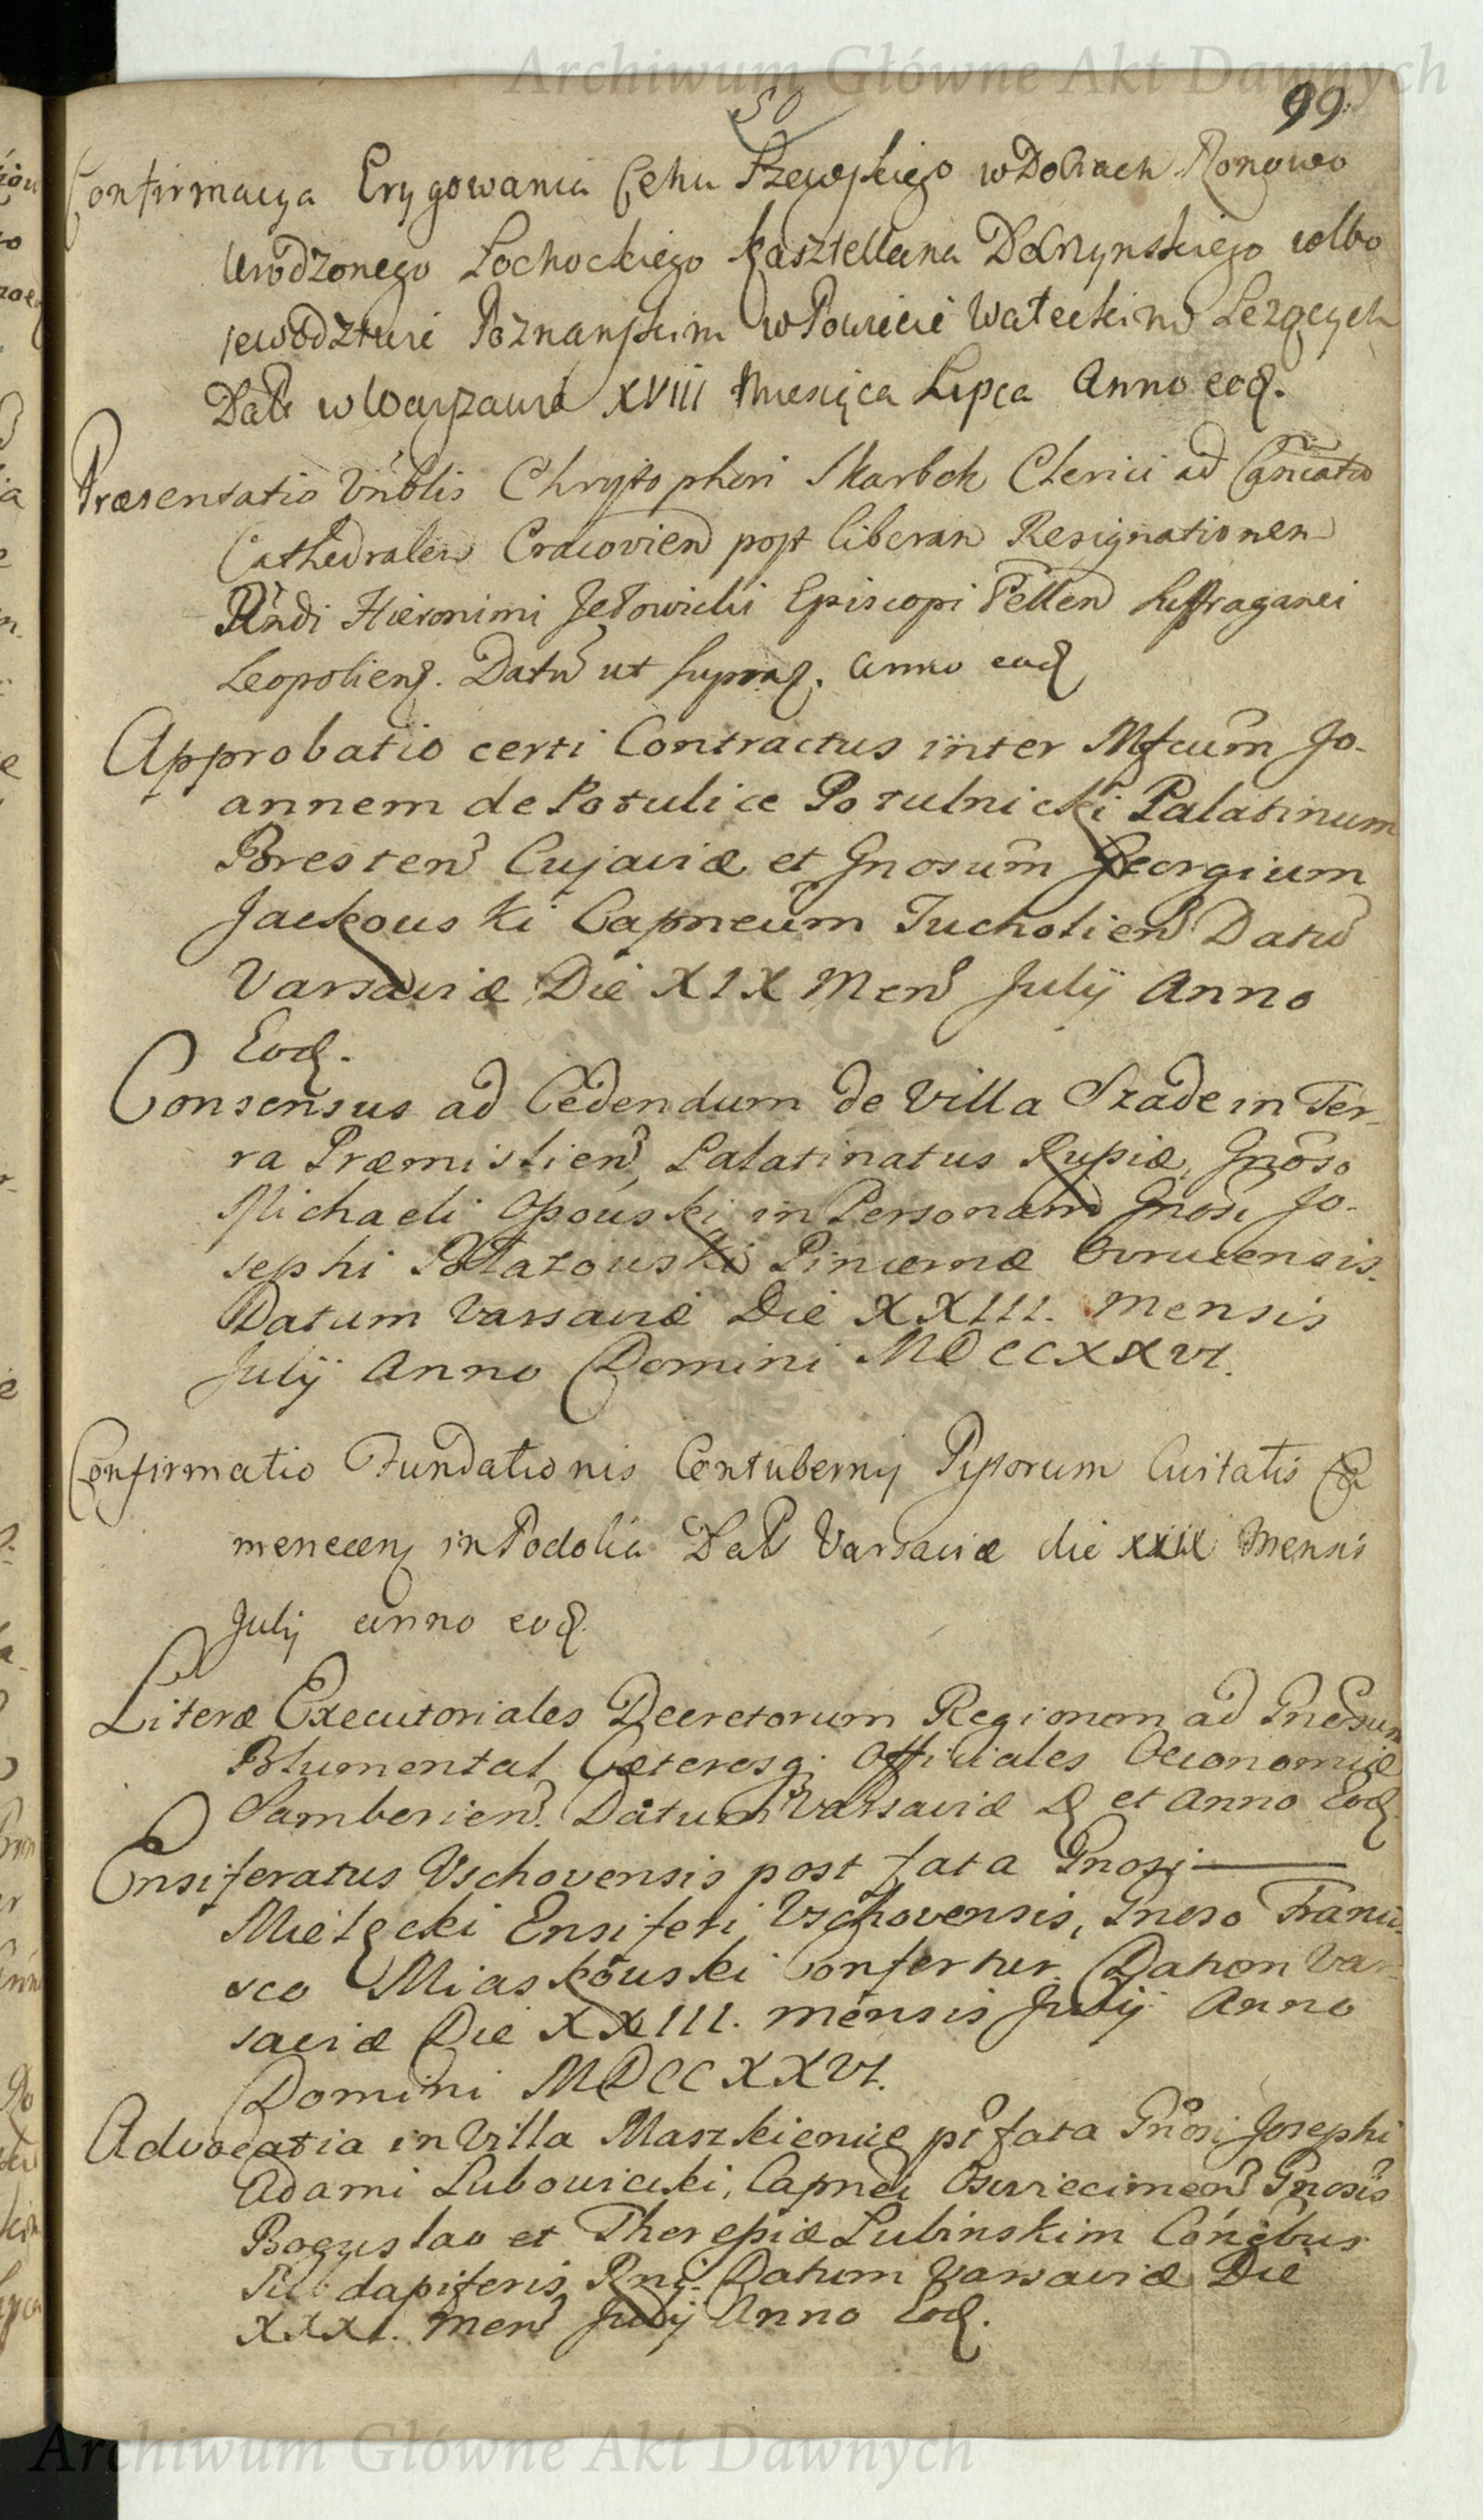 Archiwum Główne Akt Dawnych
50
99.
Confirmacya Erygowania Cehu Szewskiego w Dobrach Ronowo
Urodzonego Lochockiego Kasztellana Dobrzynskiego w Wo
jewodztwie Poznanskim w Powiecie Wałeckim Lezących
Datt w Warszawie XVIII Miesiąca Lipca Anno eod.
Præsentatio Vnblis Chrystophori Skarbek Clerici ad Canicatū
Cathedralem Cracovien post liberam Resignationem
Rndi Hieronimi Jełowicki Episcopi Pellen Suffraganei
Leopoliens. Datū ut supra. Anno eod
Approbatio certi Contractus inter Mfcum Jo-
annem de Potulice Potulnicki Palatinum
Bresten Cujaviæ et Gnosum Georgium
Jackouski Capneum Tucholien Datū
Varsaviæ Die XIX Men Julÿ Anno
Eod.
Consensus ad Cedendum de Villa Szade in Ter-
ra Præmislien, Palatinatus Rusiæ, Gnoso
Michaeli Ossouski in Personam Gnosi Jo-
sephi Pinœrnæ Ovrucensis.
Datum Varsaviæ Die XXIII. Mensis
Julÿ Anno Domini MDCCXXVI.
Confirmatio Fundationis Contubernij Pistorum Civitatis Ca
menecen in Podolia Datt Varsaviæ die XXIX Mensis
Julij anno eod.
Literæ Executoriales Decretorum Regiorum ad Gnosum
Blumental Cæterosq; Officiales Oeconomiæ
Samborien. Datum Varsaviæ D et Anno Eod.
Ensiferatus Vschovensis post fata Gnosi ———
Mielęcki Ensiferi Vschovensis, Gnoso Franci-
sco Miaskouski Confertur. Datum Var-
saviæ Die XXIII. mensis Julÿ Anno
Domini MDCCXXVI.
Advocatia in Villa Maszkienice pt fata Gnosi Josephi
Adami Lubowiecki, Capnei Osviecimen Gnosis
Bogusłao et Theresiæ Lubinskim Conibus
Subdapiferis Rni. Datum Varsaviæ Die
XXXI. Men Julÿ Anno Eod.
Archiwum Główne Akt Dawnych